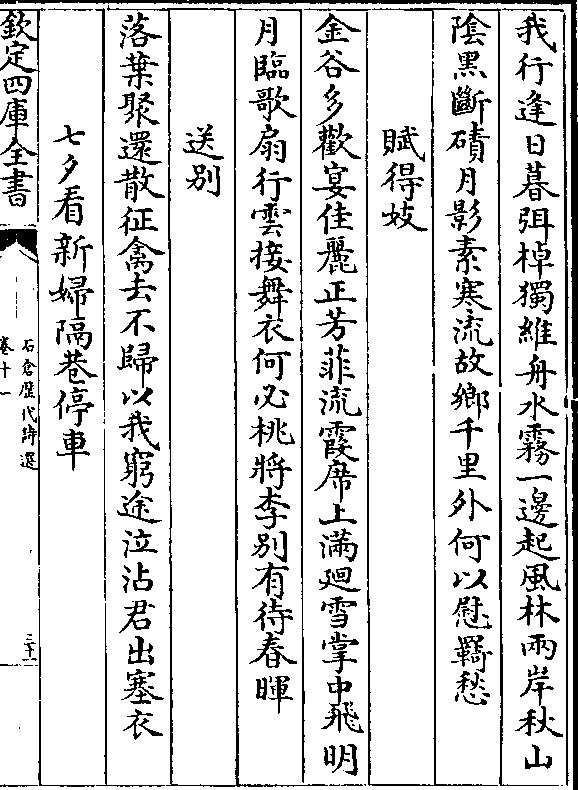 我行逢日暮弭棹獨維舟水霧一邊起風林兩岸秋山
陰黑斷磧月影素寒流故鄉千里外何以慰羇愁
賦得妓
金谷多歡宴佳麗正芳菲流霞席上滿廻雪掌中飛明
月臨歌扇行雲接舞衣何必桃將李别有待春暉
送别
落葉聚還散征禽去不歸以我窮途泣沾君出塞衣
七夕看新婦隔巷停車
欽定四庫全書
石倉歷代詩選
卷十一